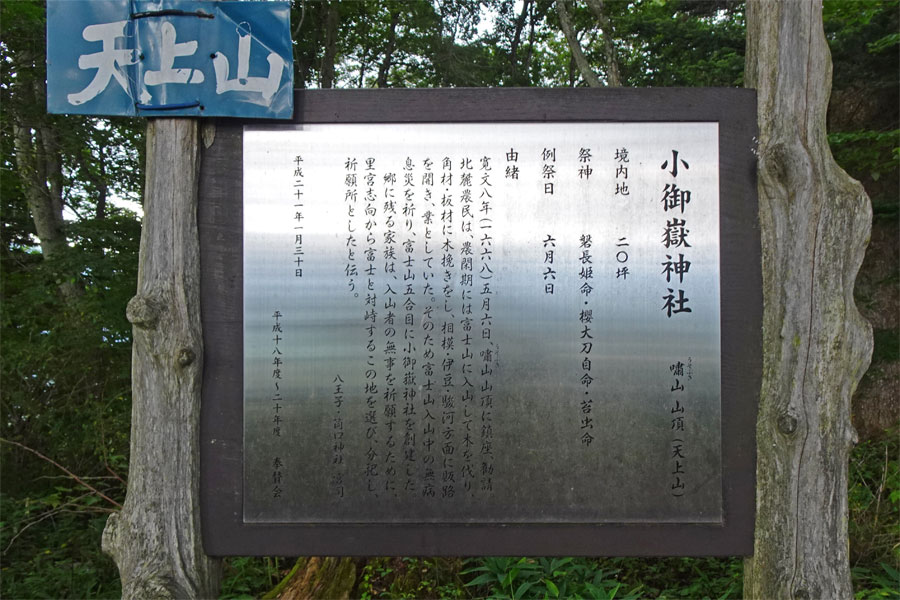 天上山
小御嶽神社
嘯山 山頂 (天上山)
うそぶき
境内地 二〇坪
祭神 磐長姫命・櫻大刀自命・苔虫命
例祭日 六月六日
由緒
寛文八年(一六六八)五月六日、嘯山山頂に鎮座、勧請
北麓農民は、農閑期には富士山に入山して木を伐り、
角材・板材に木挽きをし、相模・伊豆・駿河方面に販路
を開き、業としていた。そのため富士山入山中の無病
息災を祈り、富士山五合目に小御嶽神社を創建した。
郷に残る家族は、入山者の無事を祈願するために、
里宮志向から富士と対峙するこの地を選び、分祀し、
祈願所としたと伝う。
八王子・筒口神社 宮司
平成二十一年一月三十日
平成十八年度～二十年度 奉賛会